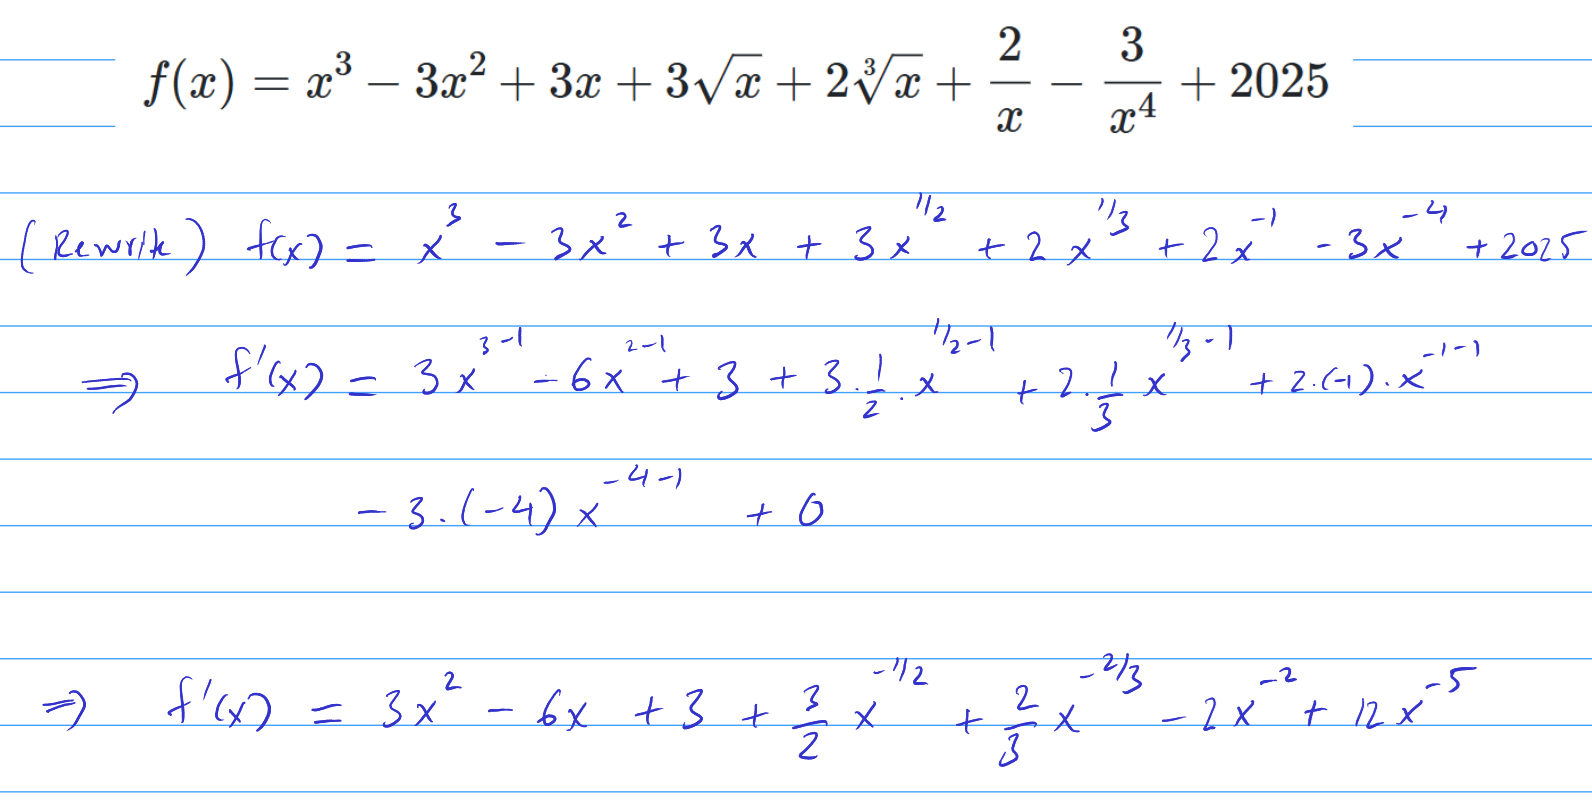 f(x) = x³ − 3x² + 3x + 3√x + 2∛x + 2/x − 3/x⁴ + 2025
(Rewrite) f(x) = x^3 − 3x^2 + 3x + 3x^{1/2} + 2x^{1/3} + 2x^{-1} - 3x^{-4} + 2025
⇒ f'(x) = 3x^{3-1} − 6x^{2-1} + 3 + 3·1/2·x^{1/2-1} + 2·1/3 x^{1/3-1} + 2·(-1)·x^{-1-1}
− 3·(-4)x^{-4-1} + 0
⇒ f'(x) = 3x^2 − 6x + 3 + 3/2 x^{-1/2} + 2/3 x^{-2/3} − 2x^{-2} + 12x^{-5}